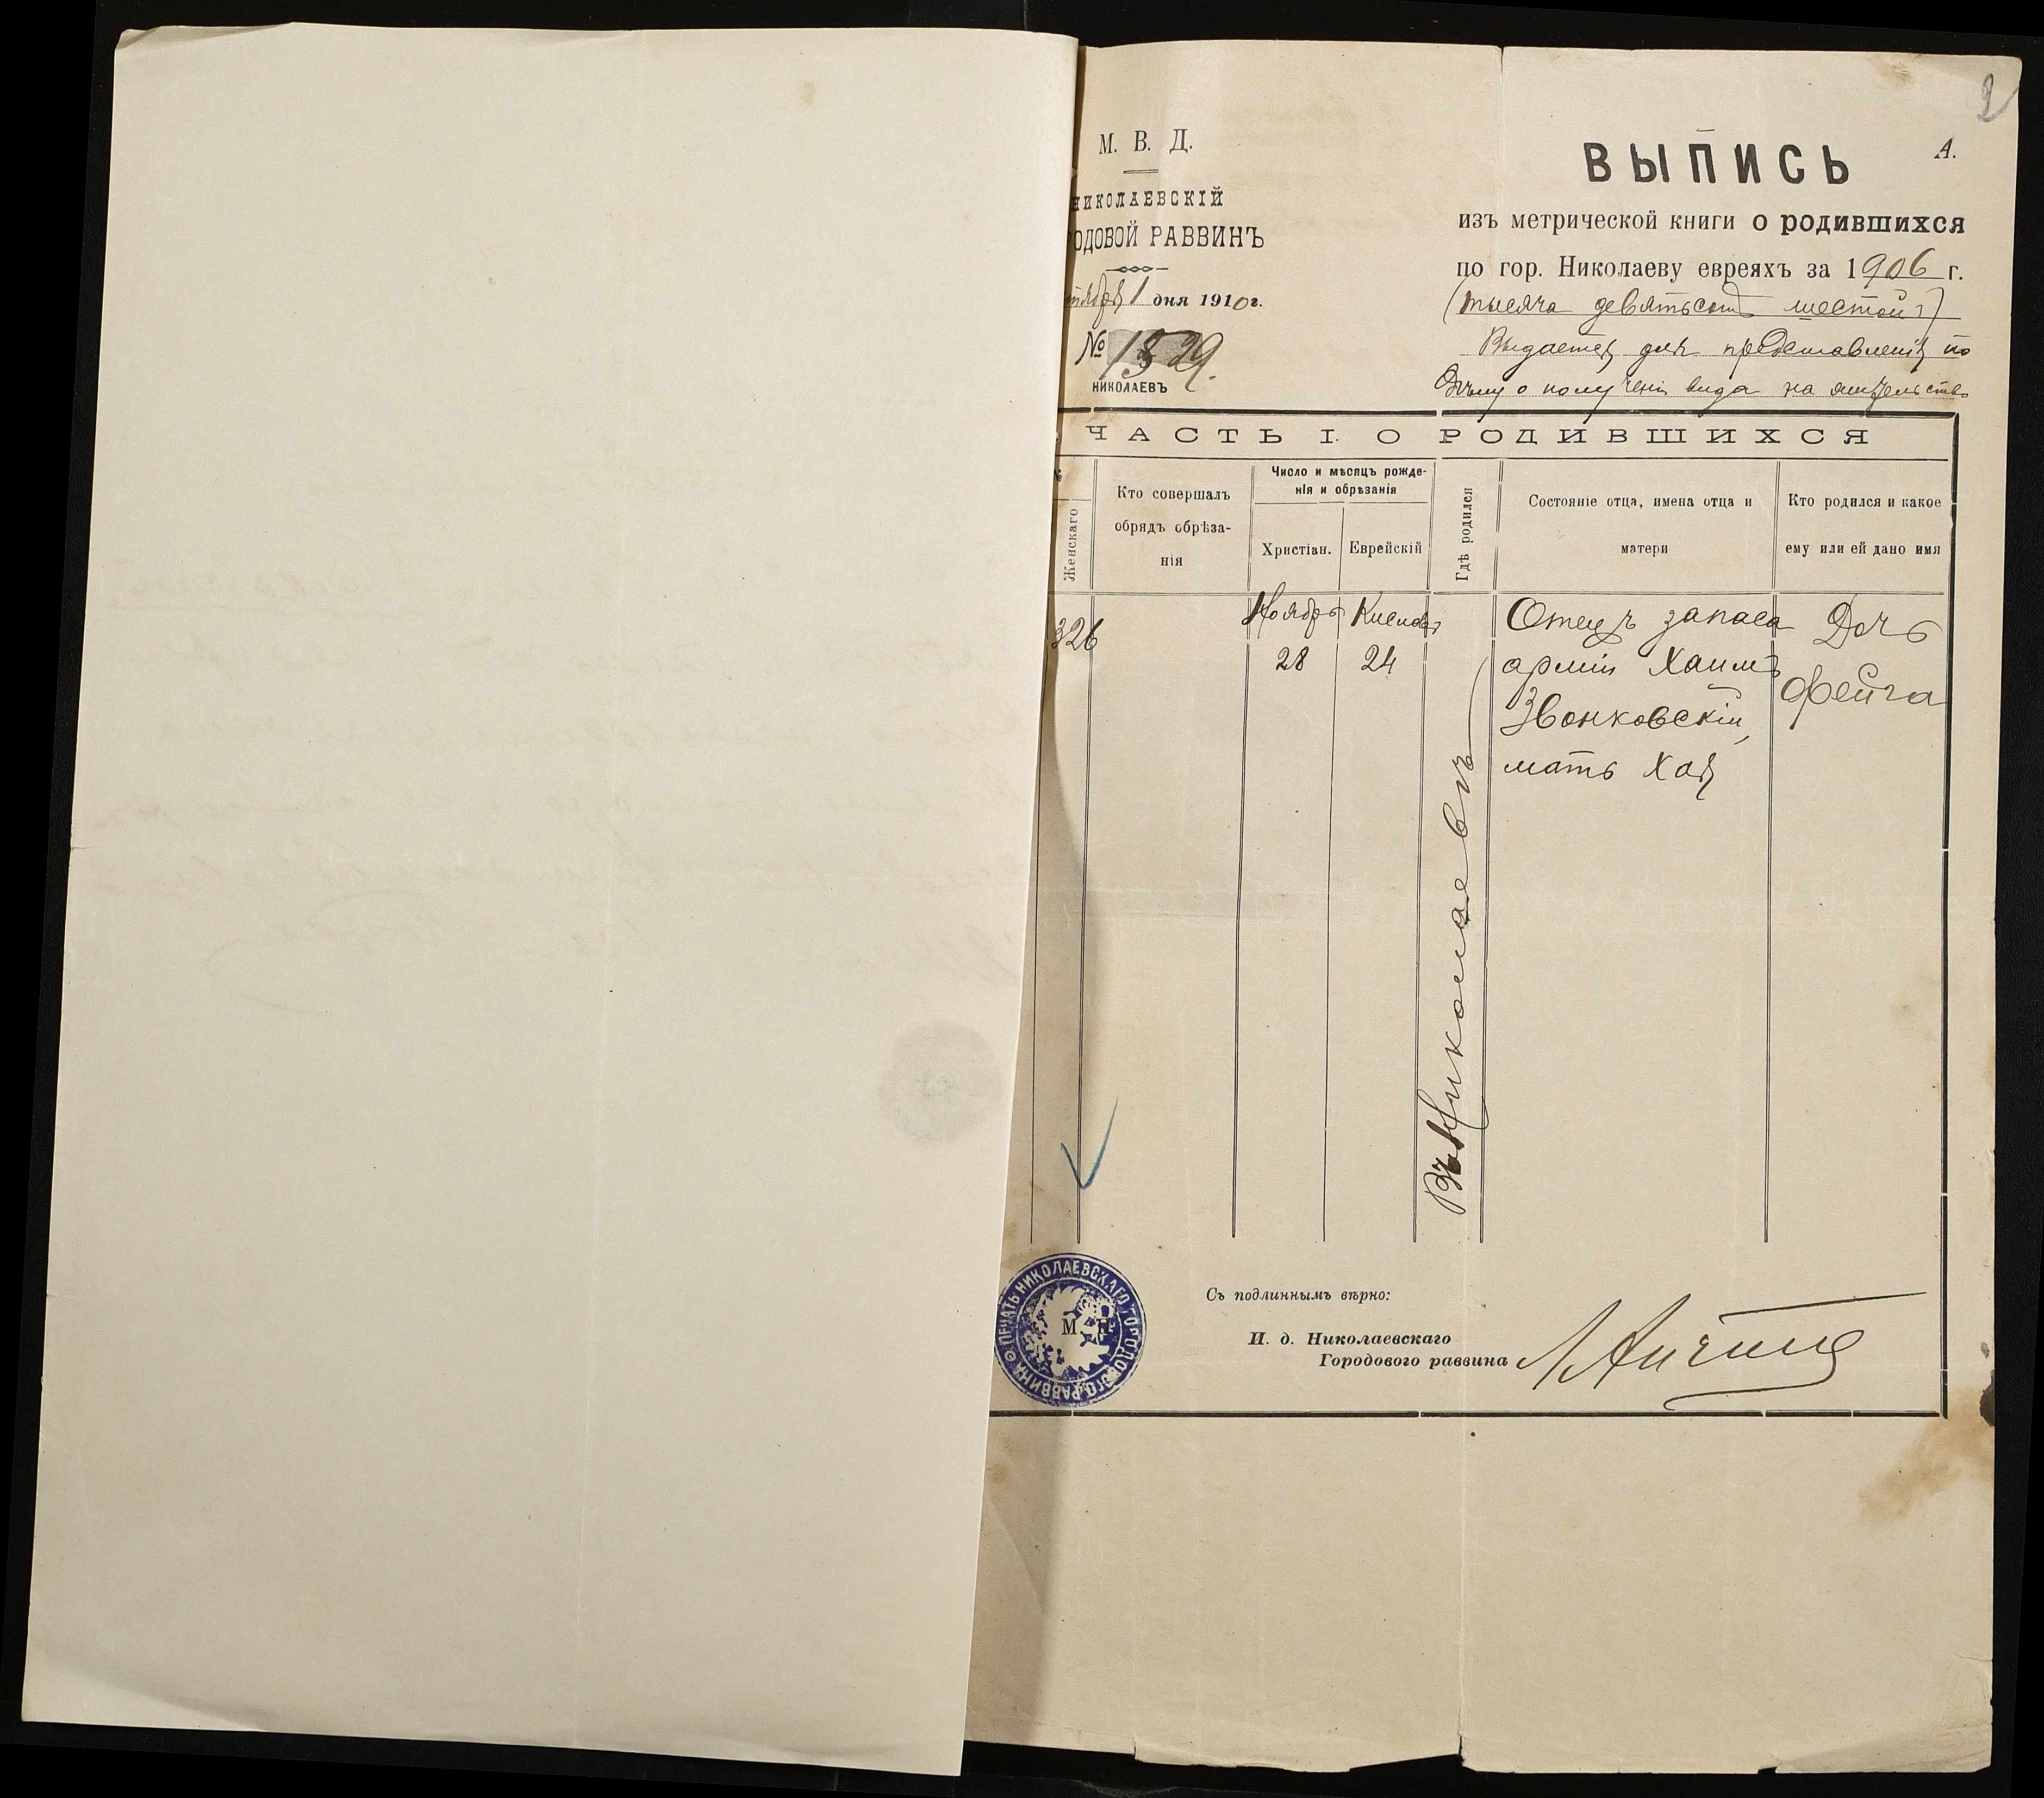 2
А.
М. В. Д.
НИКОЛАЕВСКІЙ
РОДОВОЙ РАВВИНЪ
тября 1 дня 1910 г.
№ 1529.
НИКОЛАЕВЪ
ВЫПИСЬ
изъ метрической книги о родившихся
по гор. Николаеву евреяхъ за 1906 г.
(тысяча девятьсотъ шестой)
Выдается для представленія по
о полученіи вида на жительство
ЧАСТЬ I. О РОДИВШИХСЯ
Женскаго
Кто совершалъ
обрядъ обрѣза-
нія
Число и мѣсяцъ рожде-
нія и обрѣзанія
Христіан.
Еврейскій
Гдѣ родился
Состояніе отца, имена отца и
матери
Кто родился и какое
ему или ей дано имя
326
Ноябрь
28
Кислевъ
24
Въ Николаевѣ
Отецъ запаса
арміи Хаимъ
Звонковскій,
мать Хая
Дочь
Фейга
ПЕЧАТЬ НИКОЛАЕВСКАГО ГОРОДОВОГО РАВВИНА
М. П.
Съ подлиннымъ вѣрно:
И. д. Николаевскаго
Городового раввина